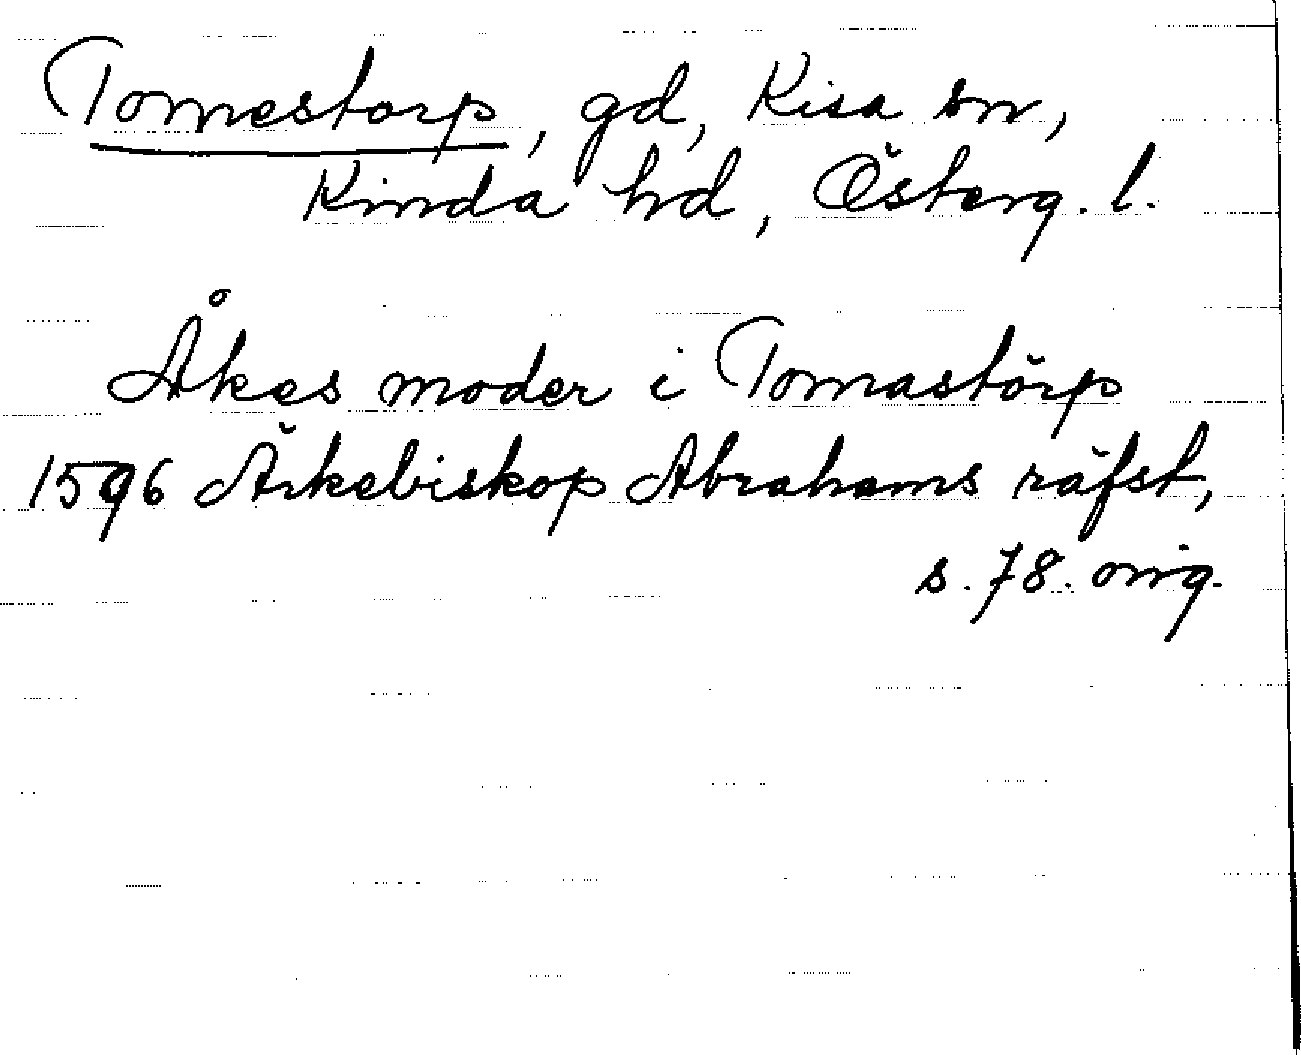 Tomestorp, gd, Kisa sn,
Kinda hd, Österg. l.
Åkes moder i Tomastörp
1596 Ärkebiskop Abrahams räfst,
s. 78. orig.